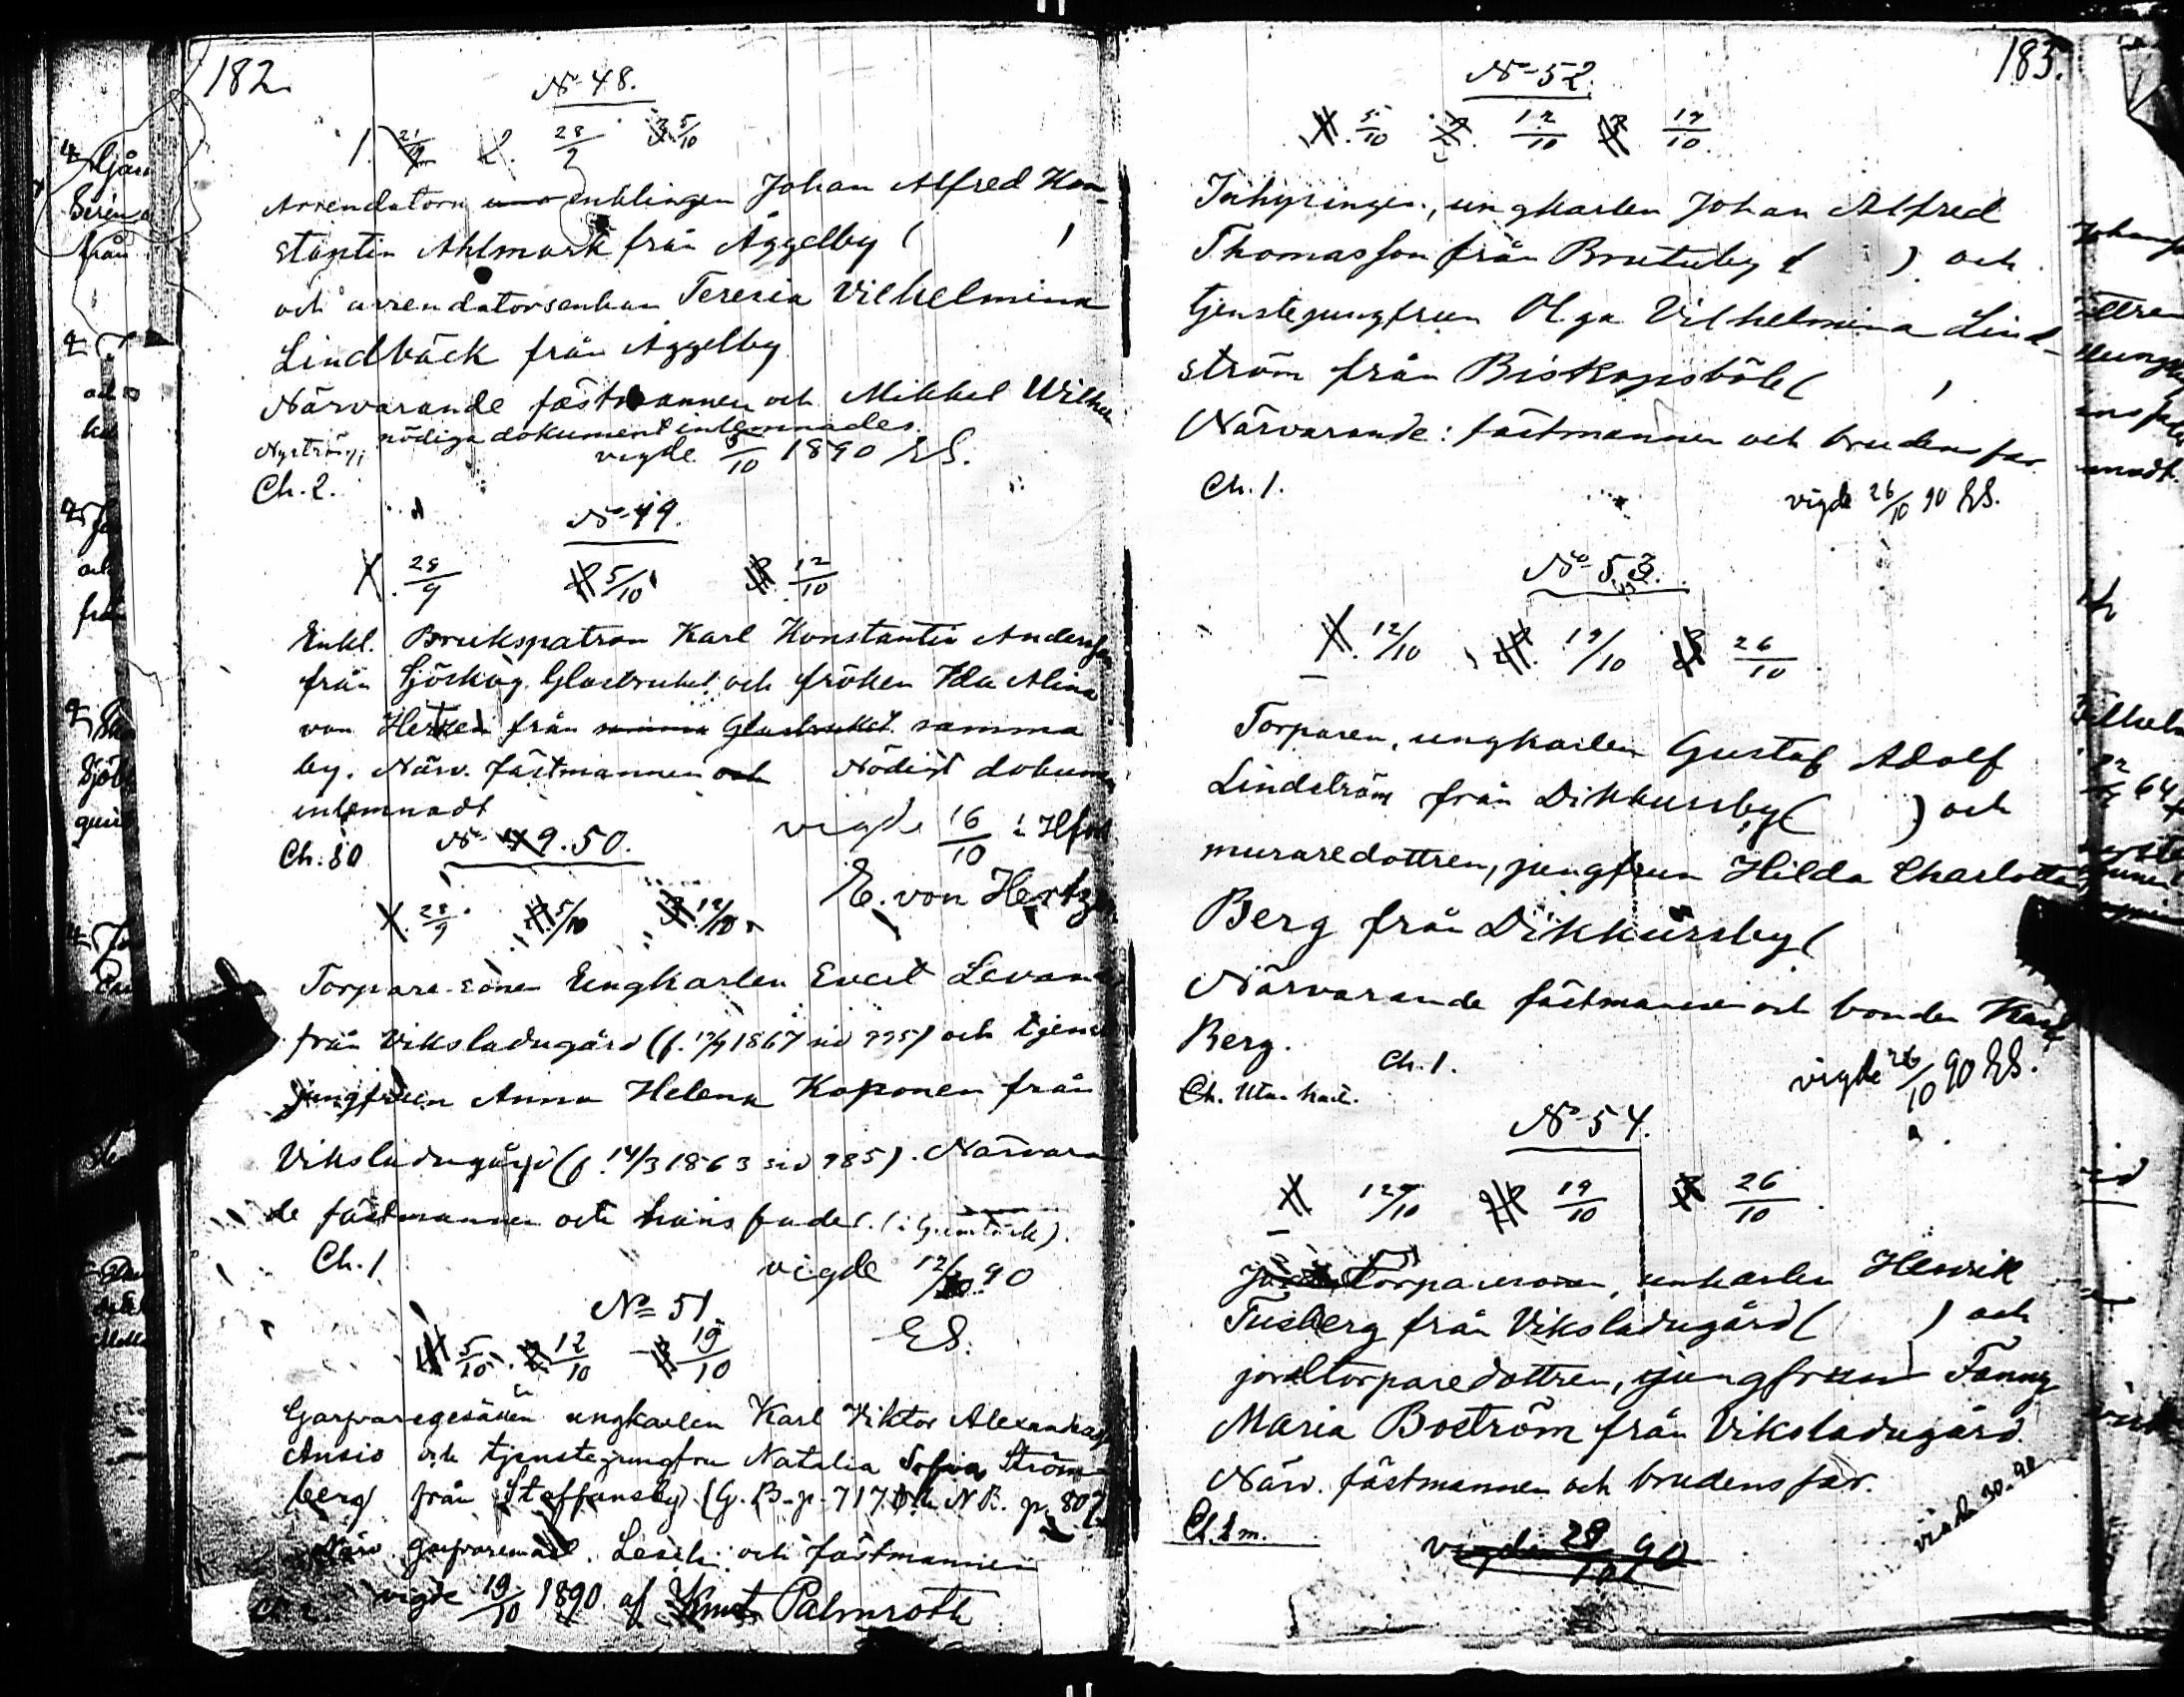 182.
No 48.
1. 21/9 2. 28/9 3. 5/10
Arrendatorn enklingen Johan Alfred Kon-
stantin Ahlmark från Åggelby ( )
och arrendatorsenkan Teresia Vilhelmina
Lindbäck från Åggelby
Närvarande fästmannen och Mikkel Wilhe
Nyström, nödiga dokument inlemnades.
vigde 5/10 1890 ES.
Ch. 2.
No 49.
1. 28/9 2. 5/10 3. 12/10
Enkl. Brukspatron Karl Konstantin Anders
från Sjöskog Glasbruket och fröken Ida Alina
von Hertzen från samma Glasbruket samma
by. Närv. fästmannen och Nödigt dokum
inlemnadt
vigde 16/10 i Hfors
Ch: 80
No 49. 50.
E. von Hertz
1. 28/9 2. 5/10 3. 12/10
Torpare-sonen Ungkarlen Evert Levan
från Viksladugård (f. 12/9 1867 sid 995) och tjenst
jungfrun Anna Helena Koponen från
Viksladugård (f. 14/3 1863 sid 985). Närvaran
de fästmannen och hans fader.
Ch. 1
vigde 12/10 90
ES.
No 51
1. 5/10 2. 12/10 3. 19/10
Garfvaregesällen ungkarlen Karl Viktor Alexander
Ansio och tjenstejungfru Natalia Sofia Ström
berg från Staffansby. (G. B. p. 717 och N.B. p. 807
Närv. garfvaremäst. och fästmannen
vigde 19/10 1890 af Knut Palmroth
183.
No 52.
1. 5/10 2. 12/10 3. 19/10
Inhysingen, ungkarlen Johan Alfred
Thomasson från Brutuby ( ) och
tjenstejungfrun Olga Vilhelmina Lind-
ström från Biskopsböle ( )
Närvarande: fästmannen och brudens far
Ch. 1.
vigde 26/10 90 ES.
No 53.
1. 12/10 2. 19/10 3. 26/10
Torparen, ungkarlen Gustaf Adolf
Lindström från Dikkursby ( ) och
muraredottren, jungfrun Hilda Charlotta
Berg från Dikkursby (
Närvarande fästmannen och bonden Karl
Berg.
Ch. 1.
vigde 26/10 90 ES.
No 54.
1. 12/10 2. 19/10 3. 26/10
Torparesonen, unkarlen Henrik
Tusberg från Viksladugård ( ) och
jordtorparedottren, jungfrun Fanny
Maria Boström från Viksladugård.
Närv. fästmannen och brudens far.
vigde 28/10 90